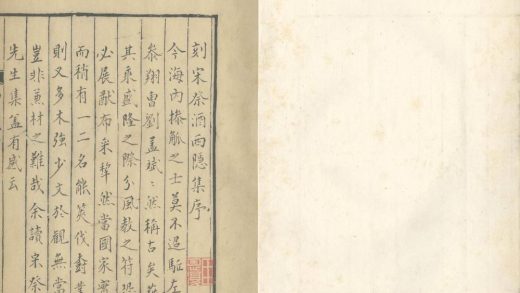 刻宋祭酒西隱集序
今海内操觚之士莫不追駈左
泰翔曹劉孟斌〻然稱古矣茲
其乘盛隆之際分風教之符
必展猷布采犂然當國家
而稍有一二名能英伐
則又多木強少文於觀無當
豈非兼材之難哉余讀宋祭
先生集葢有感云